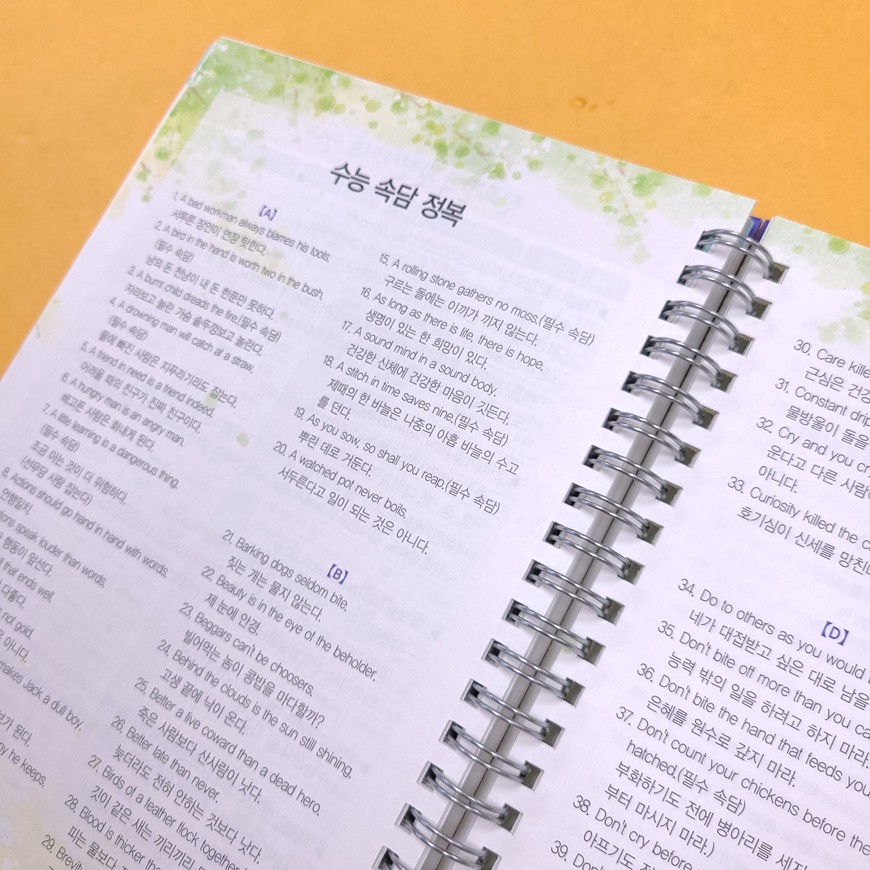 수능 속담 정복
【A】
1. A bad workman always blames his tools.
서투른 장인이 연장 탓한다.
2. A bird in the hand is worth two in the bush.
(필수 속담)
남의 돈 천냥이 내 돈 한푼만 못하다.
3. A burnt child dreads the fire.(필수 속담)
자라보고 놀란 가슴 솥뚜껑보고 놀란다.
4. A drowning man will catch at a straw.
(필수 속담)
물에 빠진 사람은 지푸라기라도 잡는다.
5. A friend in need is a friend indeed.
어려울 때의 친구가 진짜 친구이다.
6. A hungry man is an angry man.
배고픈 사람은 화내게 된다.
7. A little learning is a dangerous thing.
(필수 속담)
조금 아는 것이 더 위험하다.
(선무당 사람 잡는다)
8. Actions should go hand in hand with words.
언행일치.
speak louder than words.
행동이 앞선다.
that ends well.
not gold.
아니다.
makes Jack a dull boy.
된다.
he keeps.
15. A rolling stone gathers no moss.(필수 속담)
구르는 돌에는 이끼가 끼지 않는다.
16. As long as there is life, there is hope.
생명이 있는 한 희망이 있다.
17. A sound mind in a sound body.
건강한 신체에 건강한 마음이 깃든다.
18. A stitch in time saves nine.(필수 속담)
제때의 한 바늘은 나중의 아홉 바늘의 수고
를 던다.
19. As you sow, so shall you reap.(필수 속담)
뿌린 데로 가둔다.
20. A watched pot never boils.
서두른다고 일이 되는 것은 아니다.
【B】
21. Barking dogs seldom bite.
짖는 개는 물지 않는다.
22. Beauty is in the eye of the beholder.
제 눈에 안경.
23. Beggars can't be choosers.
빌어먹는 놈이 콩밥을 마다할까?
24. Behind the clouds is the sun still shining.
고생 끝에 낙이 온다.
25. Better a live coward than a dead hero.
죽은 사람보다 산사람이 낫다.
26. Better late than never.
늦더라도 전혀 안하는 것보다 낫다.
27. Birds of a feather flock together.
깃이 같은 새는 끼리끼리
28. Blood is thicker
피는 물보다
29.
30. Care killed
근심은 건강
31. Constant
물방울이 돌을
32. Cry and you
운다고 다른
아니다.
33. Curiosity killed the
호기심이 신세를
【D】
34. Do to others as you would
네가 대접받고 싶은 대로 남을
35. Don't bite off more than you
능력 밖의 일을 하려고 하지 마라.
36. Don't bite the hand that feeds
은혜를 원수로 갚지 마라.
37. Don't count your chickens before
hatched.(필수 속담)
부화하기도 전에 병아리를
부터 마시지 마라.)
38. Don't cry before
아프기도
39. Don't